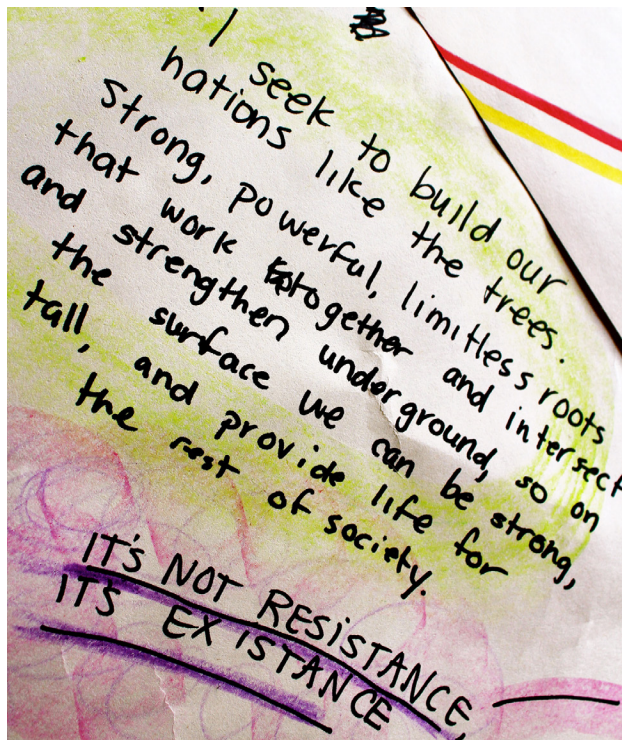 I seek to build our
nations like the trees.
Strong, powerful, limitless roots
that work together and intersect
and strengthen underground, so on
the surface we can be strong,
tall, and provide life for
the rest of society.
IT'S NOT RESISTANCE,
IT'S EXISTANCE